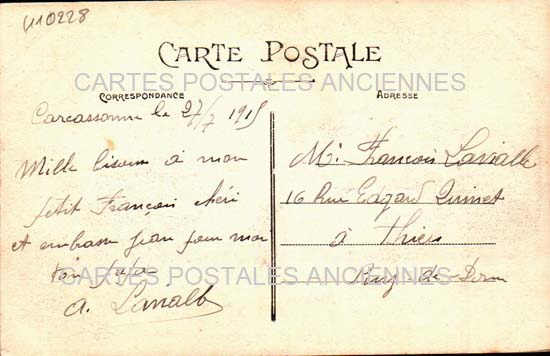 410228
CARTE POSTALE
CARTES POSTALES ANCIENNES
CORRESPONDANCE
ADRESSE
Carcassonne le 27/7 1915
Mille bisous à mon
petit François chéri
et embrasse Jean pour moi
ton papa
A. Lavialle
Mr François Lavialle
16 Rue Edgard Quinet
à Thiers
Puy-de-Dome
CARTES POSTALES ANCIENNES